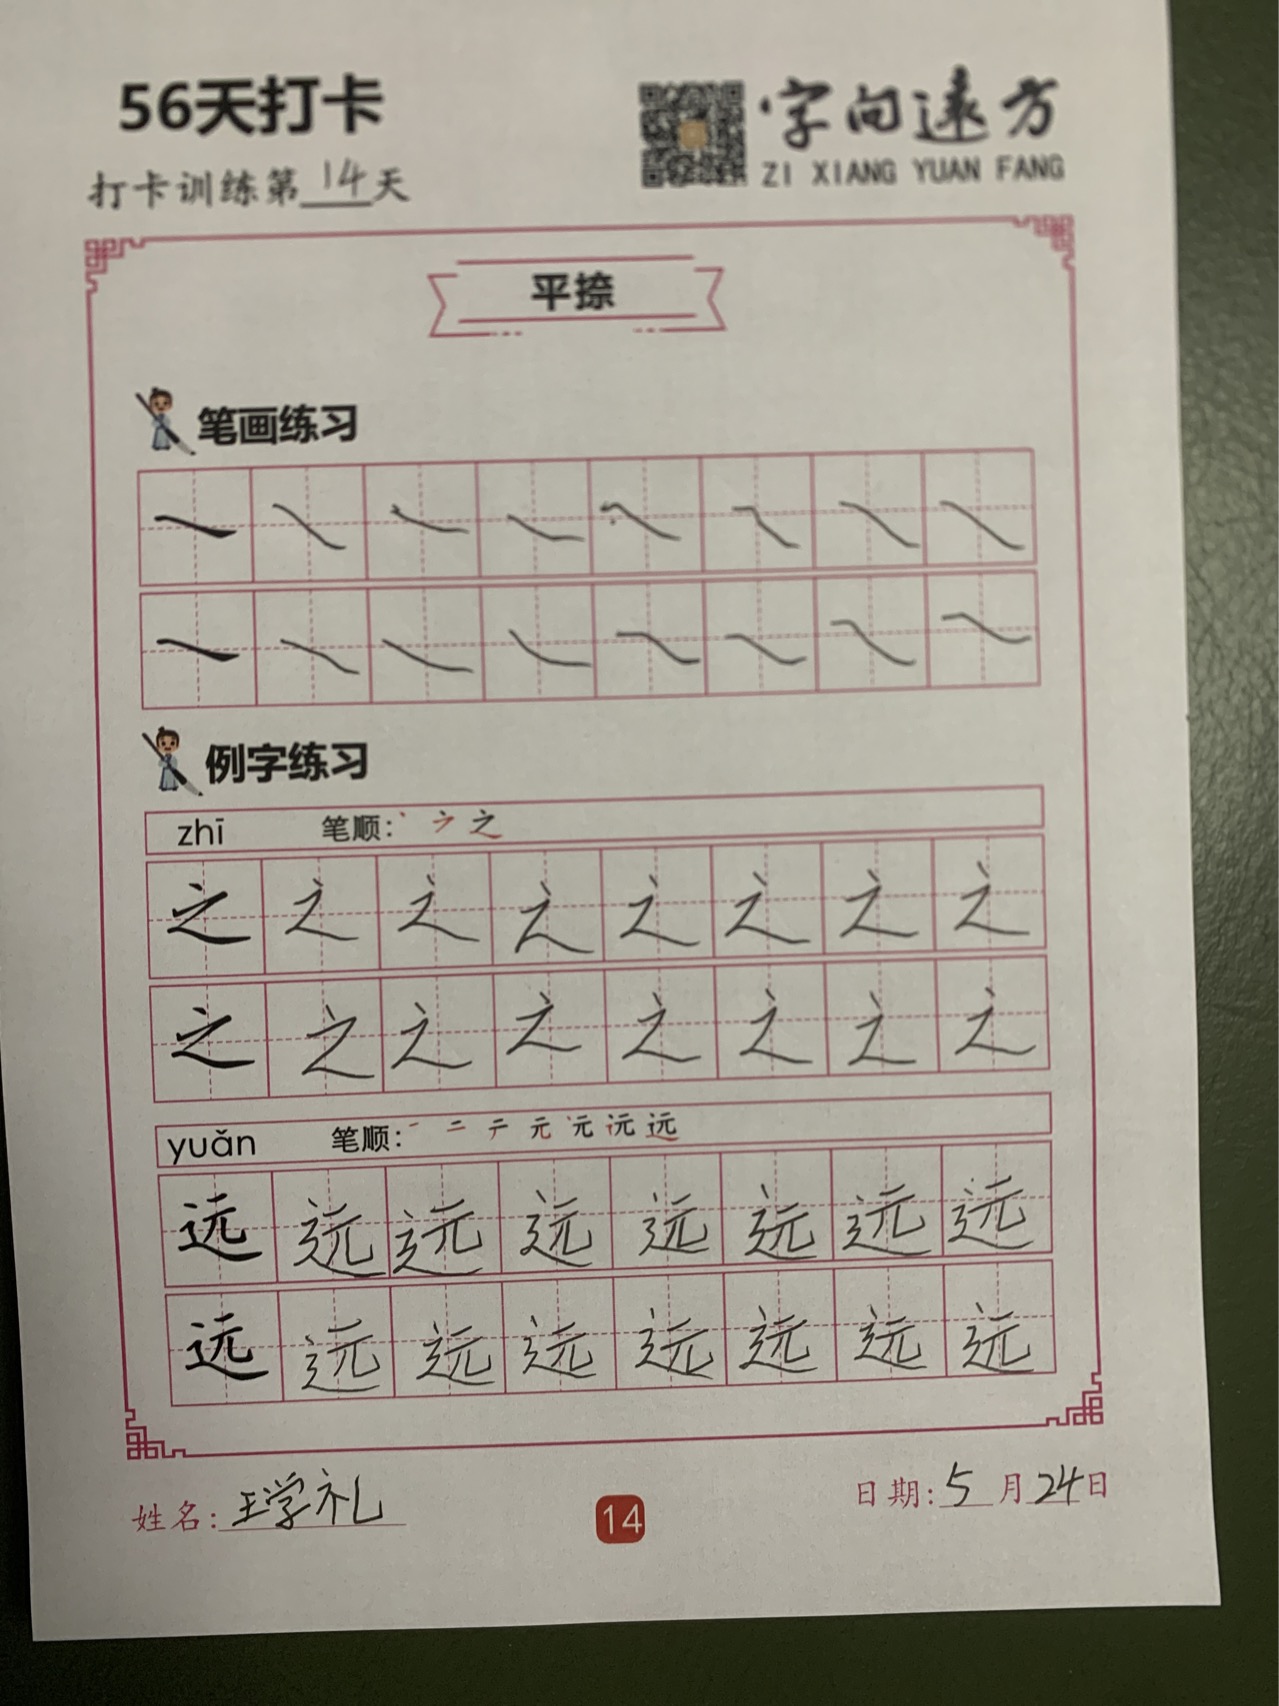 56天打卡
字向遠方
ZI XIANG YUAN FANG
打卡训练第14天
平捺
笔画练习
例字练习
zhī 笔顺: 丶 ㇇ 之
之 之 之 之 之 之 之 之
之 之 之 之 之 之 之 之
yuǎn 笔顺: 一 二 テ 元 沅 远
远 远 远 远 远 远 远 远
远 远 远 远 远 远 远 远
姓名: 王学礼
14
日期: 5 月 24 日